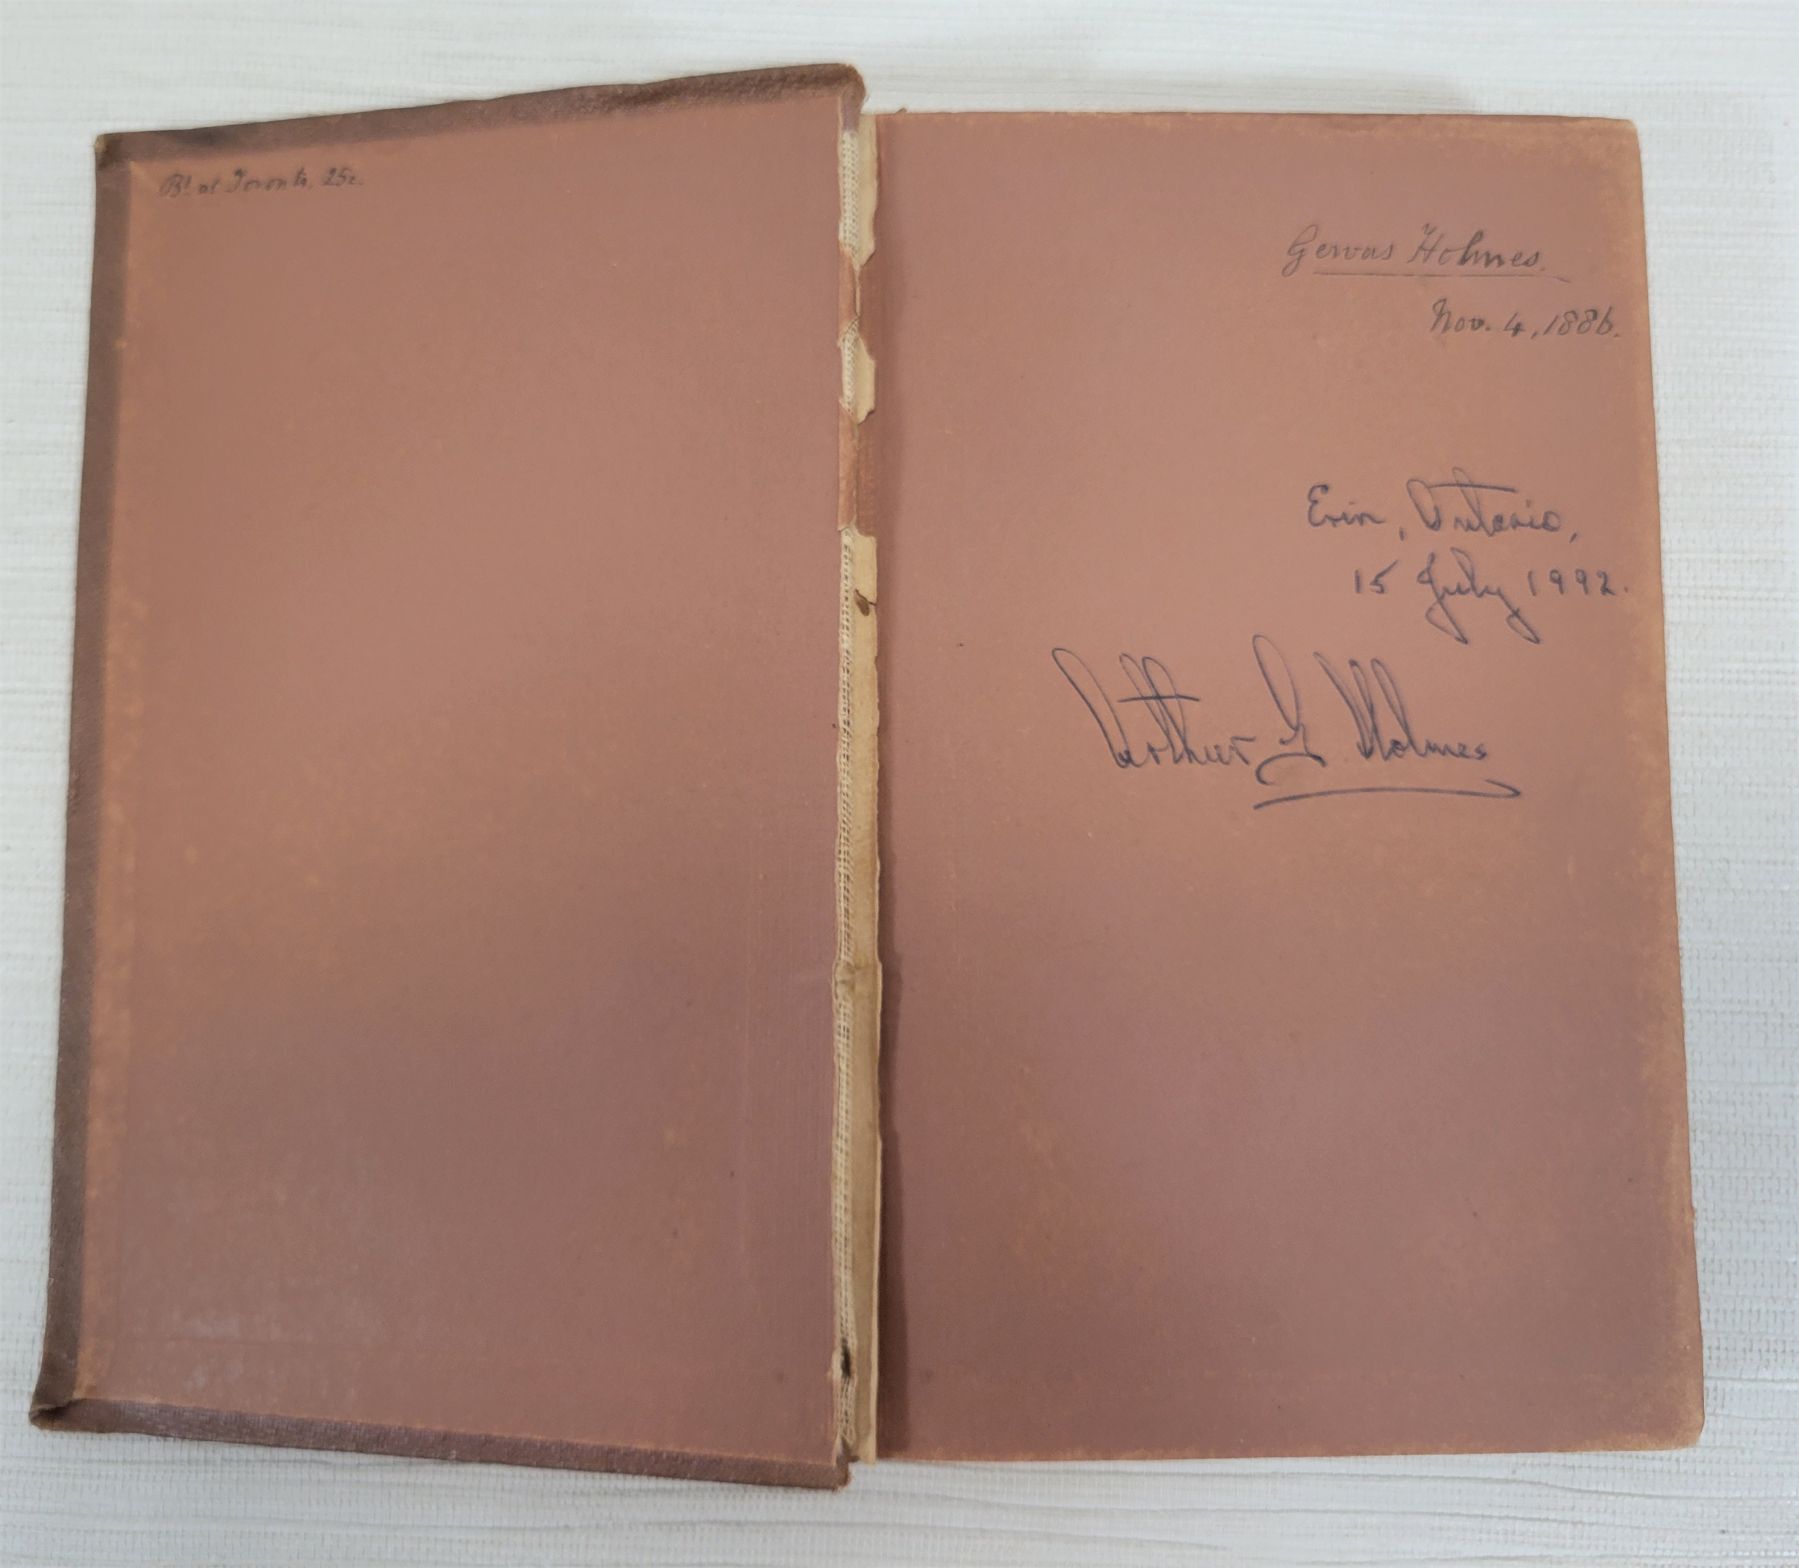 Bt at Toronto, 25c.
Gervas Holmes.
Nov. 4, 1886.
Erin, Ontario,
15 July 1992.
Arthur G Holmes